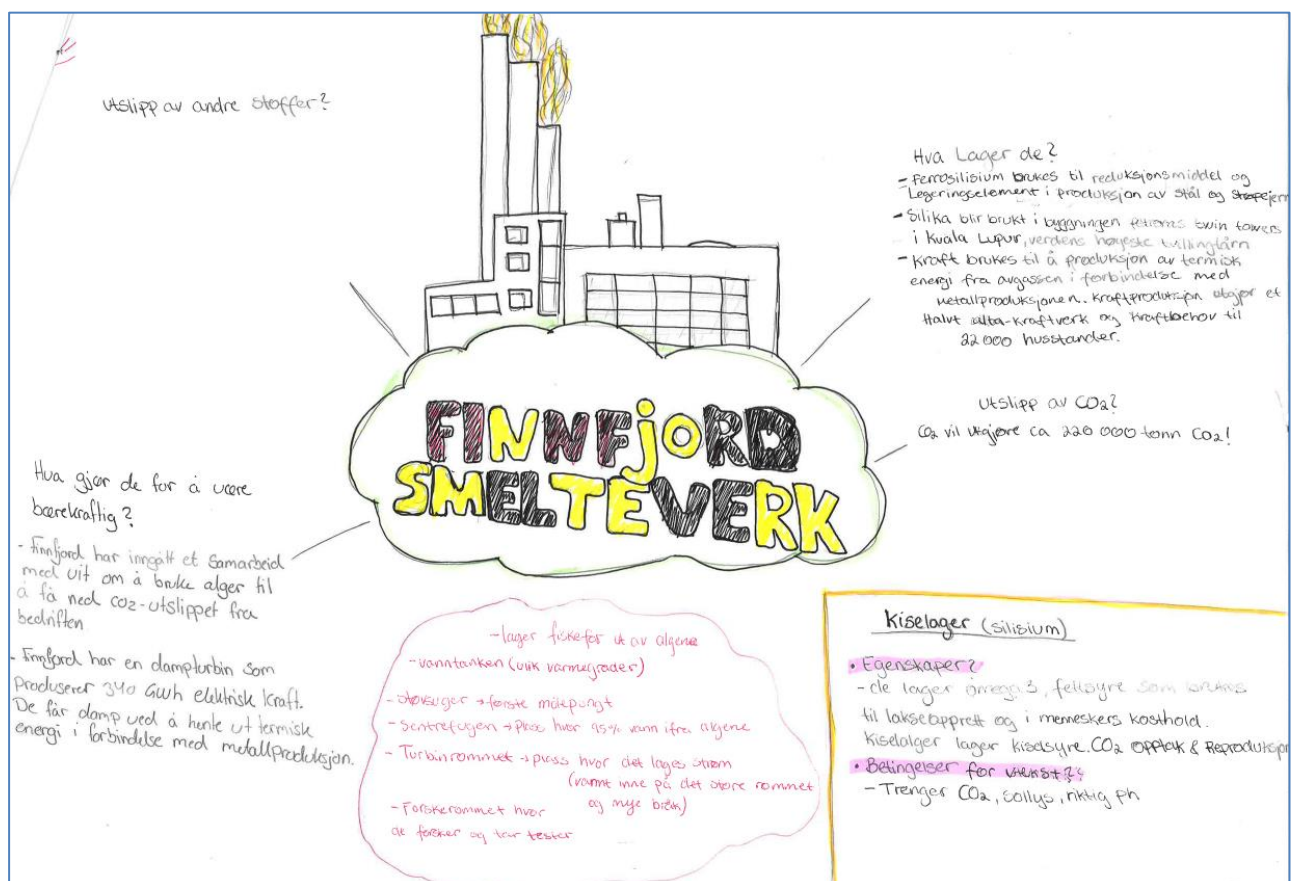 utslipp av andre stoffer?
Hva Lager de?
- Ferrosilisium brukes til reduksjonsmiddel og
Legeringselement i produksjon av stål og støpejern
- Silika blir brukt i byggningen petronas twin towers
i Kuala Lupur, verdens høyeste tvillingtårn
- Kraft brukes til å produksjon av termisk
energi fra avgassen i forbindelse med
Metallproduksjonen. Kraftproduksjon utgjør et
Halvt alta-kraftverk og Kraftbehov til
22 000 husstander.
Utslipp av CO2?
CO2 vil utgjøre ca 220 000 tonn CO2!
FINNFjORD
SMELTEVERK
Hva gjør de for å være
bærekraftig?
- Finnfjord har inngått et samarbeid
med uit om å bruke alger til
å få ned co2-utslippet fra
bedriften
- Finnfjord har en dampturbin som
Produserer 340 Gwh elektrisk kraft.
De får damp ved å hente ut termisk
energi i forbindelse med metallproduksjon.
- lager fiskefor ut av algene
- vanntanken (ulik varmegrader)
- støvsuger → første målpungt
- Sentrefugen → plass hvor 95% vann ifra algene
- Turbinrommet → plass hvor det lages strøm
(varmt inne på det store rommet
og mye bråk)
- Forskerommet hvor
de forsker og tar tester
Kiselager (silisium)
• Egenskaper?
- de lager omega 3, fettsyre som brukes
til lakseopprett og i menneskers kosthold.
Kiselalger lager kiselsyre. CO2 opptak & Reproduksjon
• Betingelser for vekst??
- Trenger CO2, sollys, riktig ph